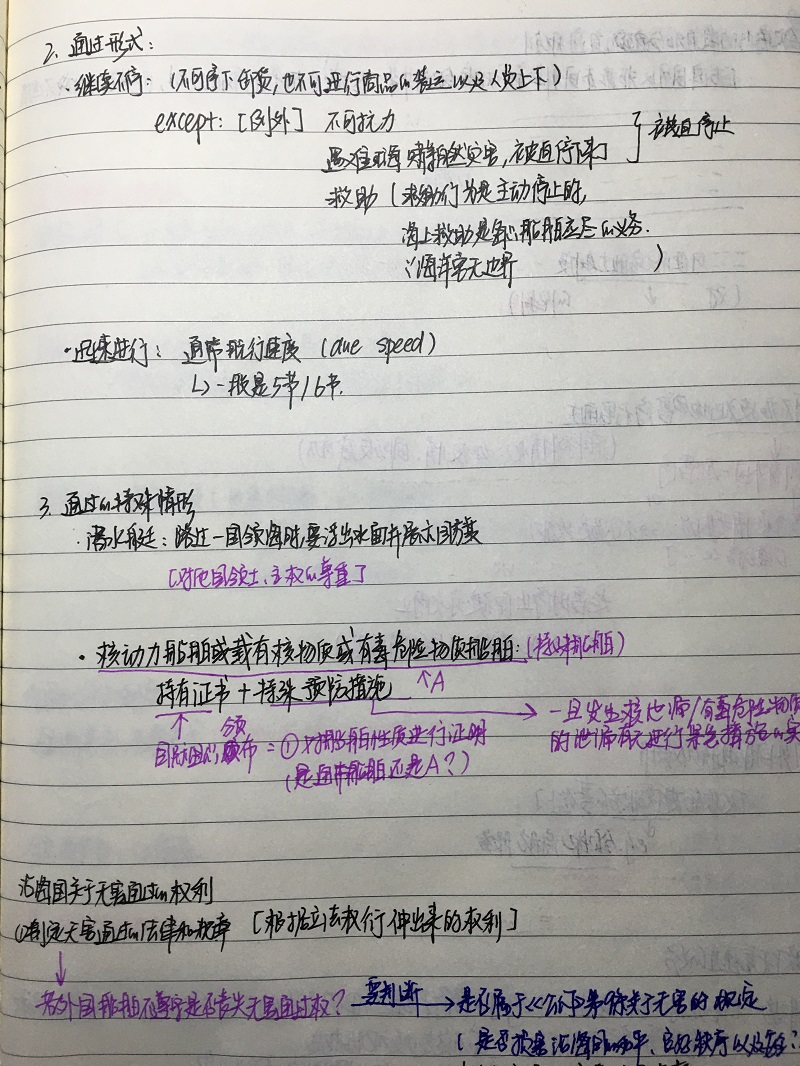 2. 通过形式:
· 继续不停: (不可停下卸货,也不可进行商品的装运以及人员上下)
except: [例外] 不可抗力
遇难或海啸等自然灾害,被迫停下来] 被迫停止
救助 (救助行为是主动停止的,
海上救助是每个船舶应尽的义务.
∵海洋害无边界 )
· 迅速进行: 通常航行速度 (due speed)
↳一般是5节/6节.
3. 通过的特殊情形
· 潜水艇: 路过一国领海时,要浮出水面并展示国旗
[对他国领土、主权的尊重]
· 核动力船舶或载有核物质或有毒危险物质船舶: (特殊船舶)
持有证书 + 特殊预防措施 ↑A
→ 一旦发生核泄漏/有毒危险物质
国际组织颁布 = ① 对船舶性质进行证明 的泄漏有无进行紧急措施的
(是通常船舶还是A?)
沿海国关于无害通过的权利
(1)制定无害通过的法律和规章 [根据立法权衍伸出来的权利]
↓
若外国船舶不遵守是否丧失无害通过权? 要判断→ 是否属于《公约》第 条关于无害的规定
( 是否损害沿海国的和平、良好秩序以及安全?